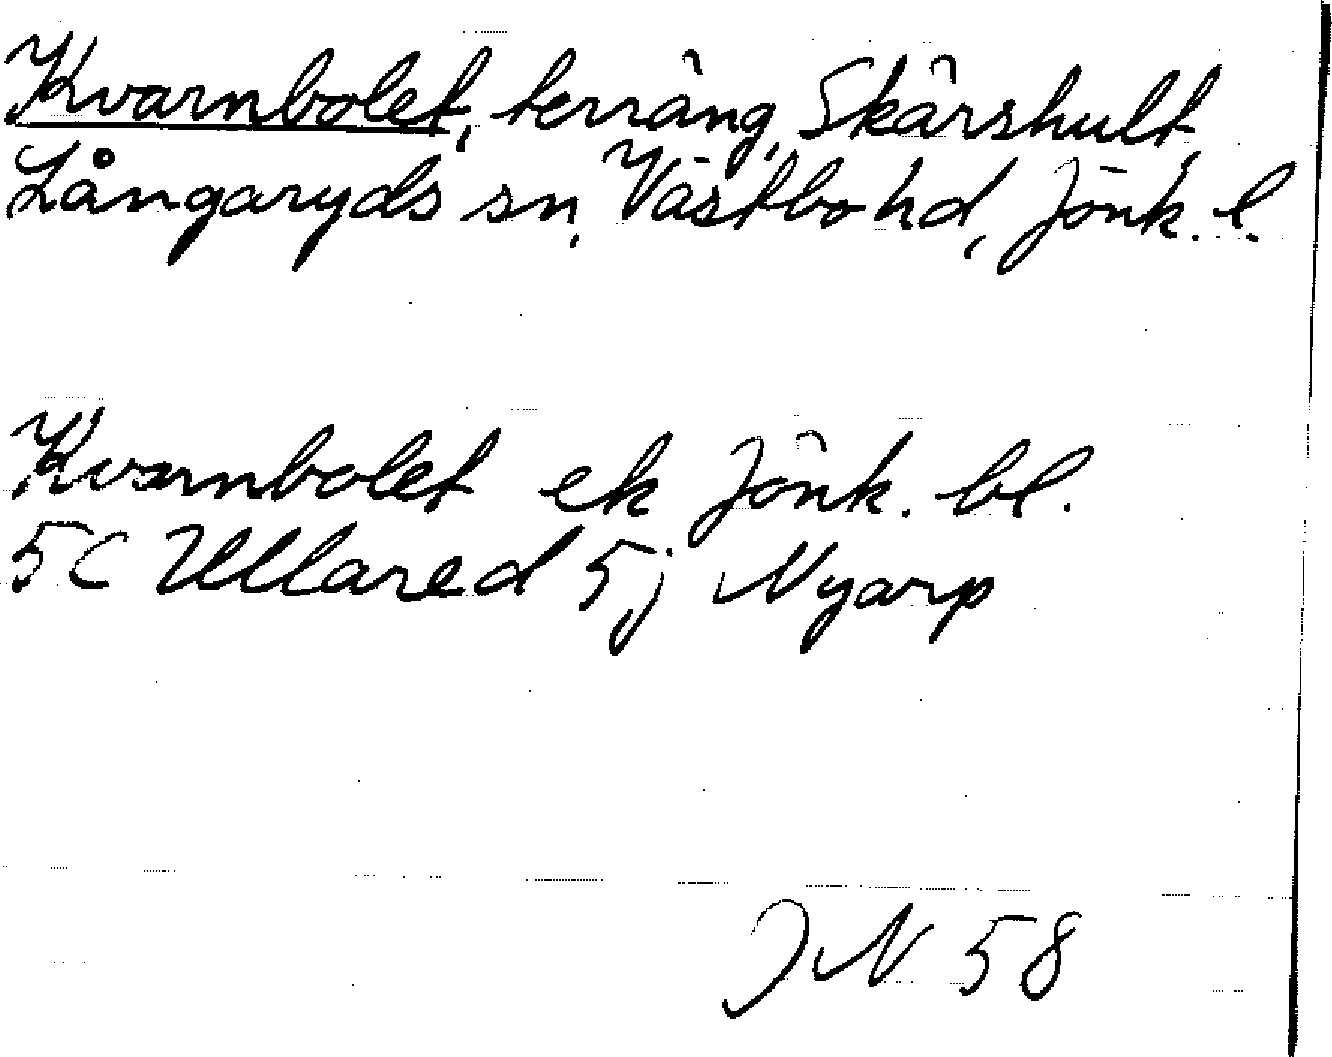 Kvarnbolet, terräng, Skärshult,
Långaryds sn, Västbo hd, Jönk. l.
Kvarnbolet ek Jönk. bl.
5C Ullared 5j Nyarp
JN 58